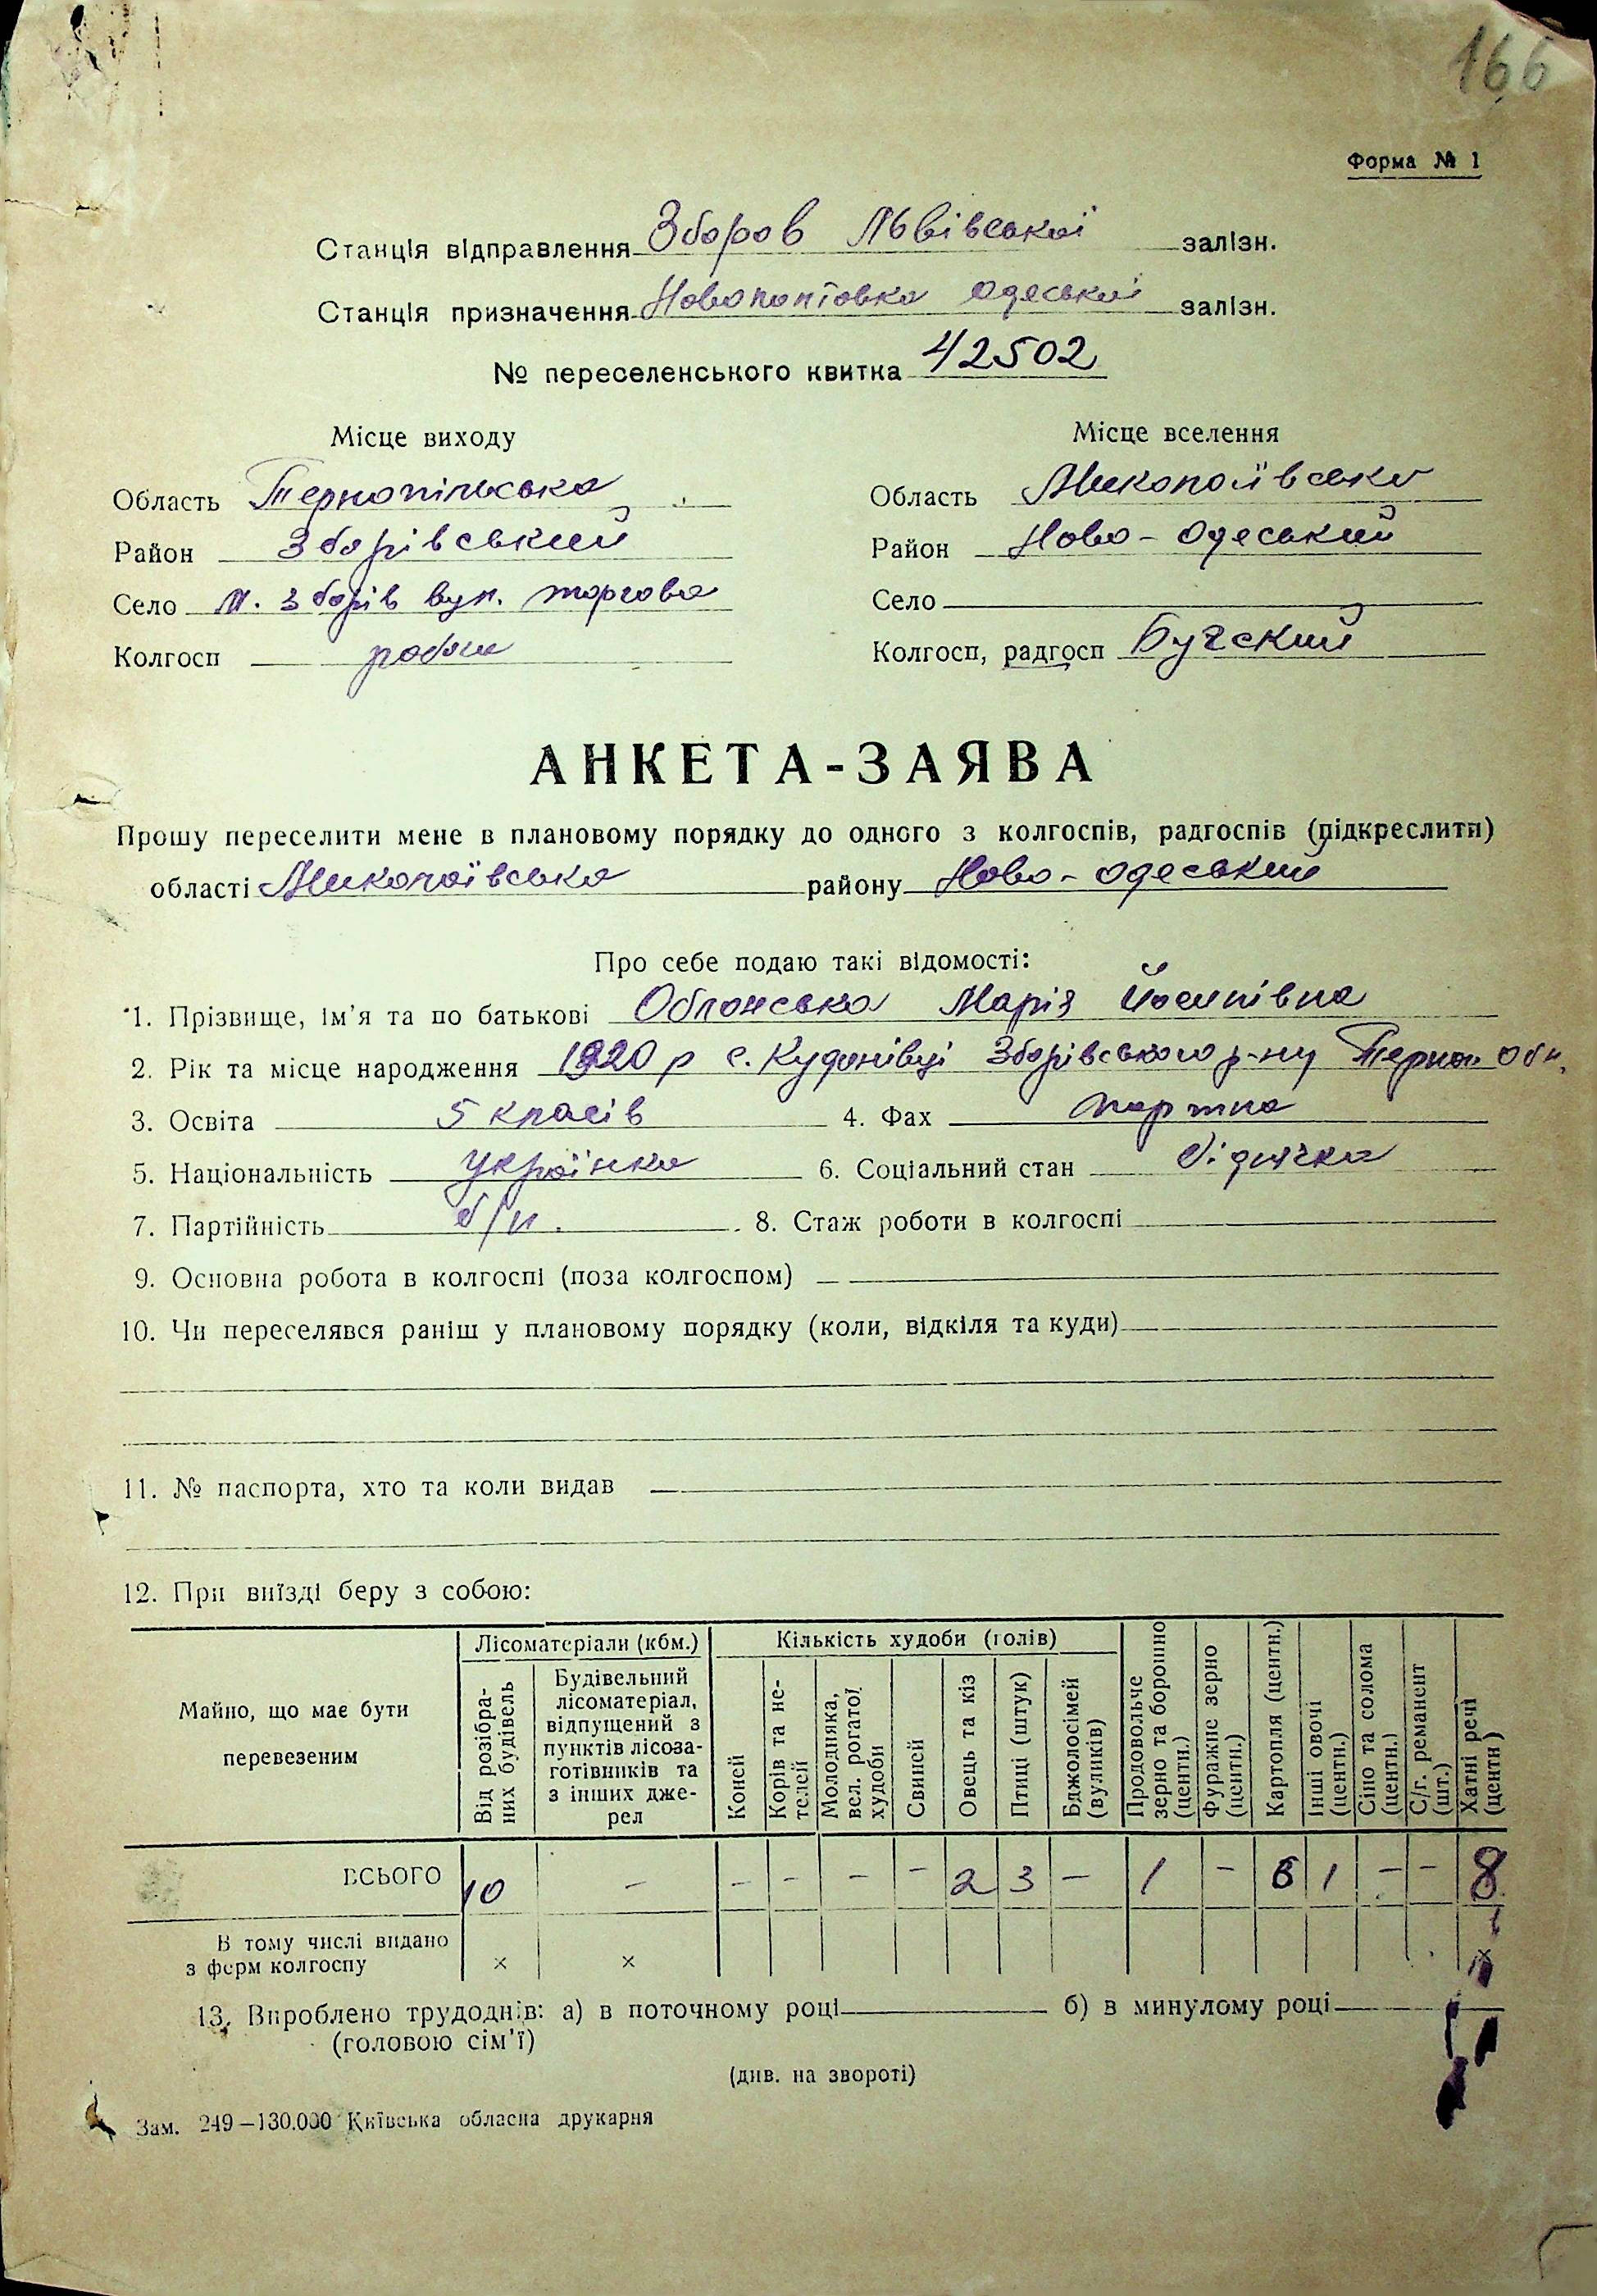 166
Форма № 1
Станція відправлення Зборов Львівської залізн.
Станція призначення Новополтовка Одеській залізн.
№ переселенського квитка 42502
Місце виходу
Область Тернопільська
Район Зборівський
Село м. Зборів вул. торгова
Колгосп
Місце вселення
Область Миколаївська
Район Ново-Одеський
Село
Колгосп, радгосп Бугский
АНКЕТА-ЗАЯВА
Прошу переселити мене в плановому порядку до одного з колгоспів, радгоспів (підкреслити)
області Миколаївська району Ново-Одеський
Про себе подаю такі відомості:
1. Прізвище, ім'я та по батькові Облонська Марія Йосипівна
2. Рік та місце народження 1920 р с. Кудонівці Зборівського р-ну Терноп. Обл.
3. Освіта 5 класів 4. Фах
5. Національність українка 6. Соціальний стан біднячка
7. Партійність б/п. 8. Стаж роботи в колгоспі
9. Основна робота в колгоспі (поза колгоспом) —
10. Чи переселявся раніш у плановому порядку (коли, відкіля та куди)
11. № паспорта, хто та коли видав
12. При виїзді беру з собою:
Майно, що має бути перевезеним
Лісоматеріали (кбм.)
Від розібраних будівель
Будівельний лісоматеріал, відпущений з пунктів лісозаготівників та з інших джерел
Кількість худоби (голів)
Коней
Корів та нетелей
Молодняка, вел. рогатої худоби
Свиней
Овець та кіз
Птиці (штук)
Бджолосімей (вуликів)
Продовольче зерно та борошно (центн.)
Фуражне зерно (центн.)
Картопля (центн.)
Інші овочі (центн.)
Сіно та солома (центн.)
С/г. реманент (шт.)
Хатні речі (центн)
ВСЬОГО 10 - - - - - 2 3 - 1 - 6 1 - - 8
В тому числі видано
з ферм колгоспу × × ×
13. Вироблено трудоднів: а) в поточному році б) в минулому році
(головою сім'ї)
(див. на звороті)
Зам. 249—130.000 Київська обласна друкарня